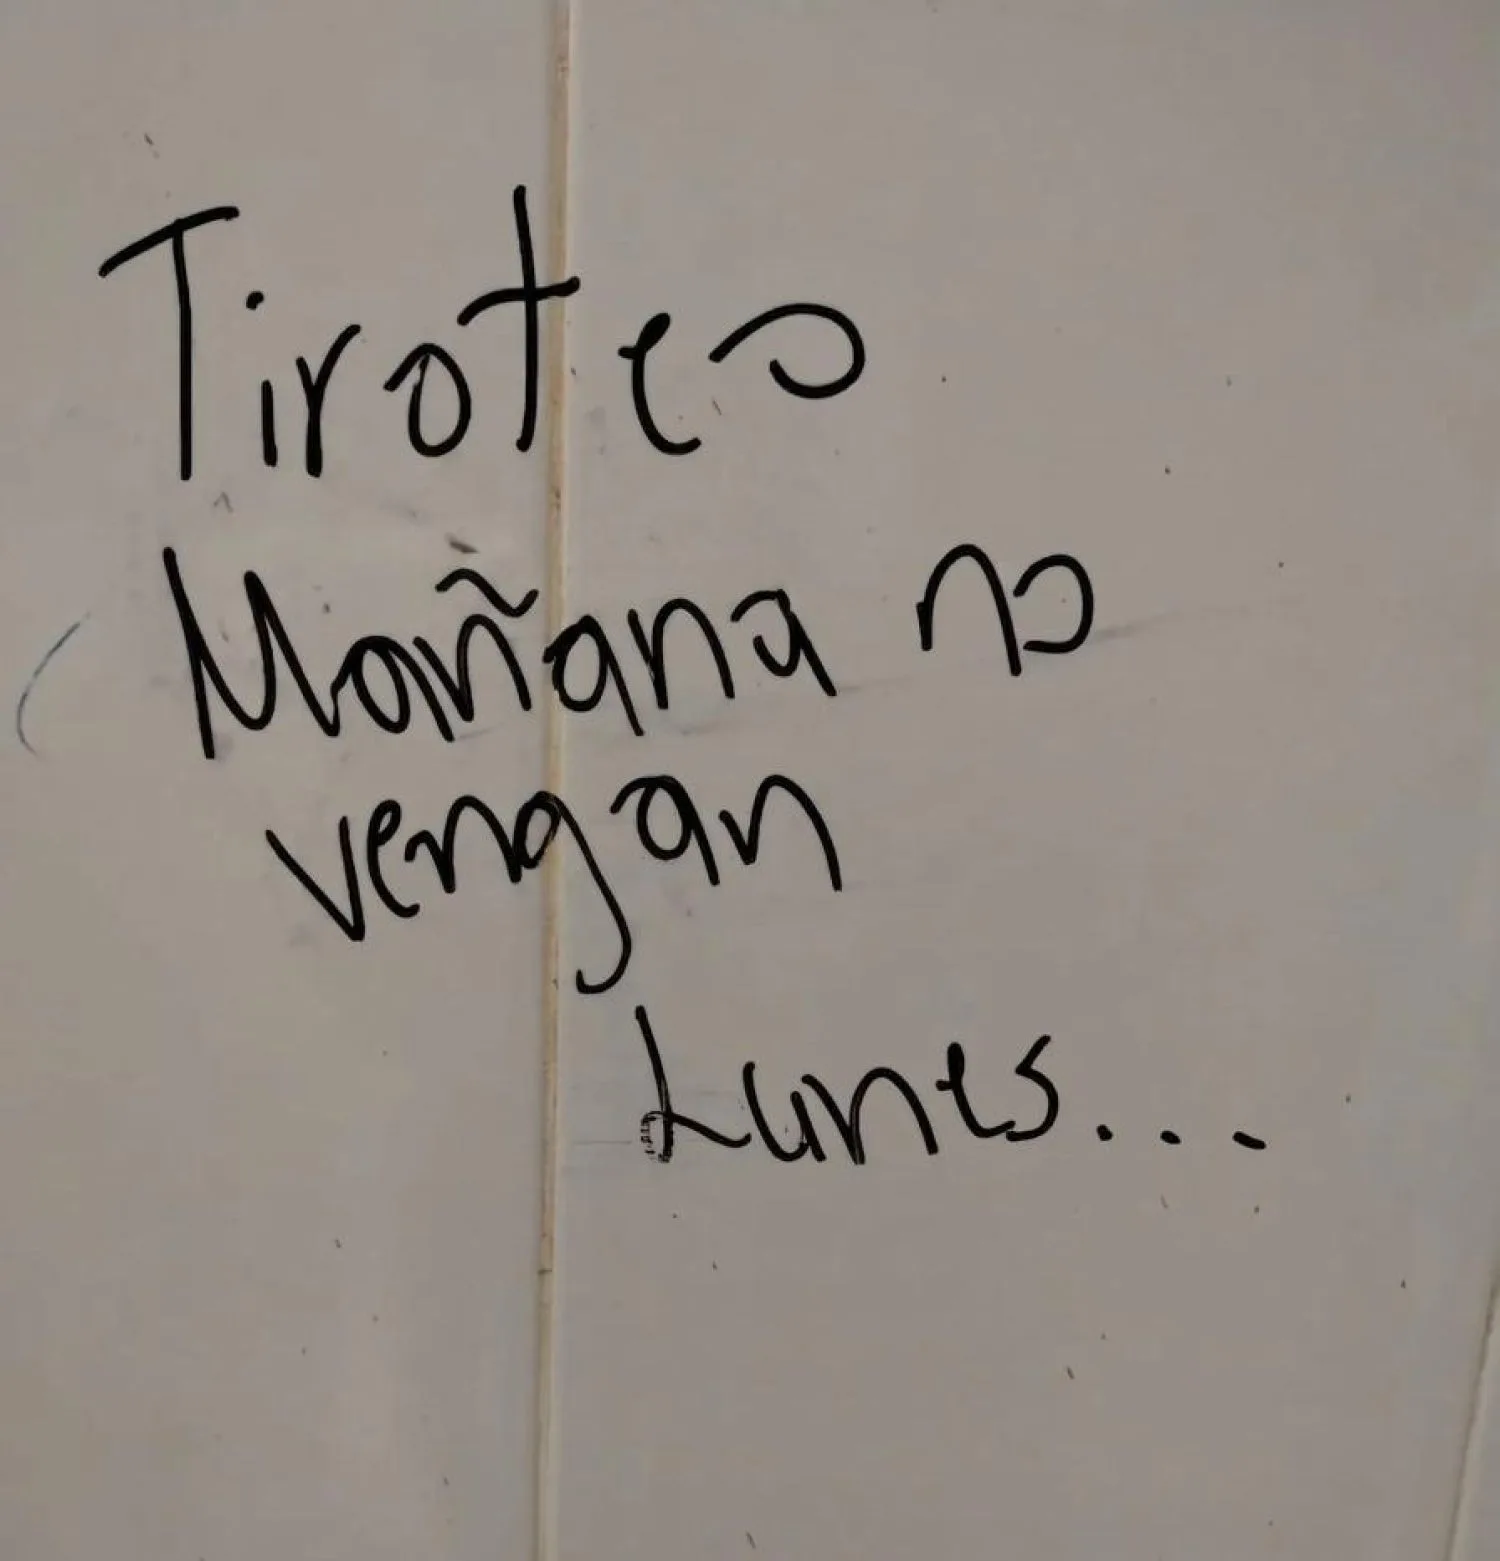 Tiroteo
Mañana no
vengan
Lunes...